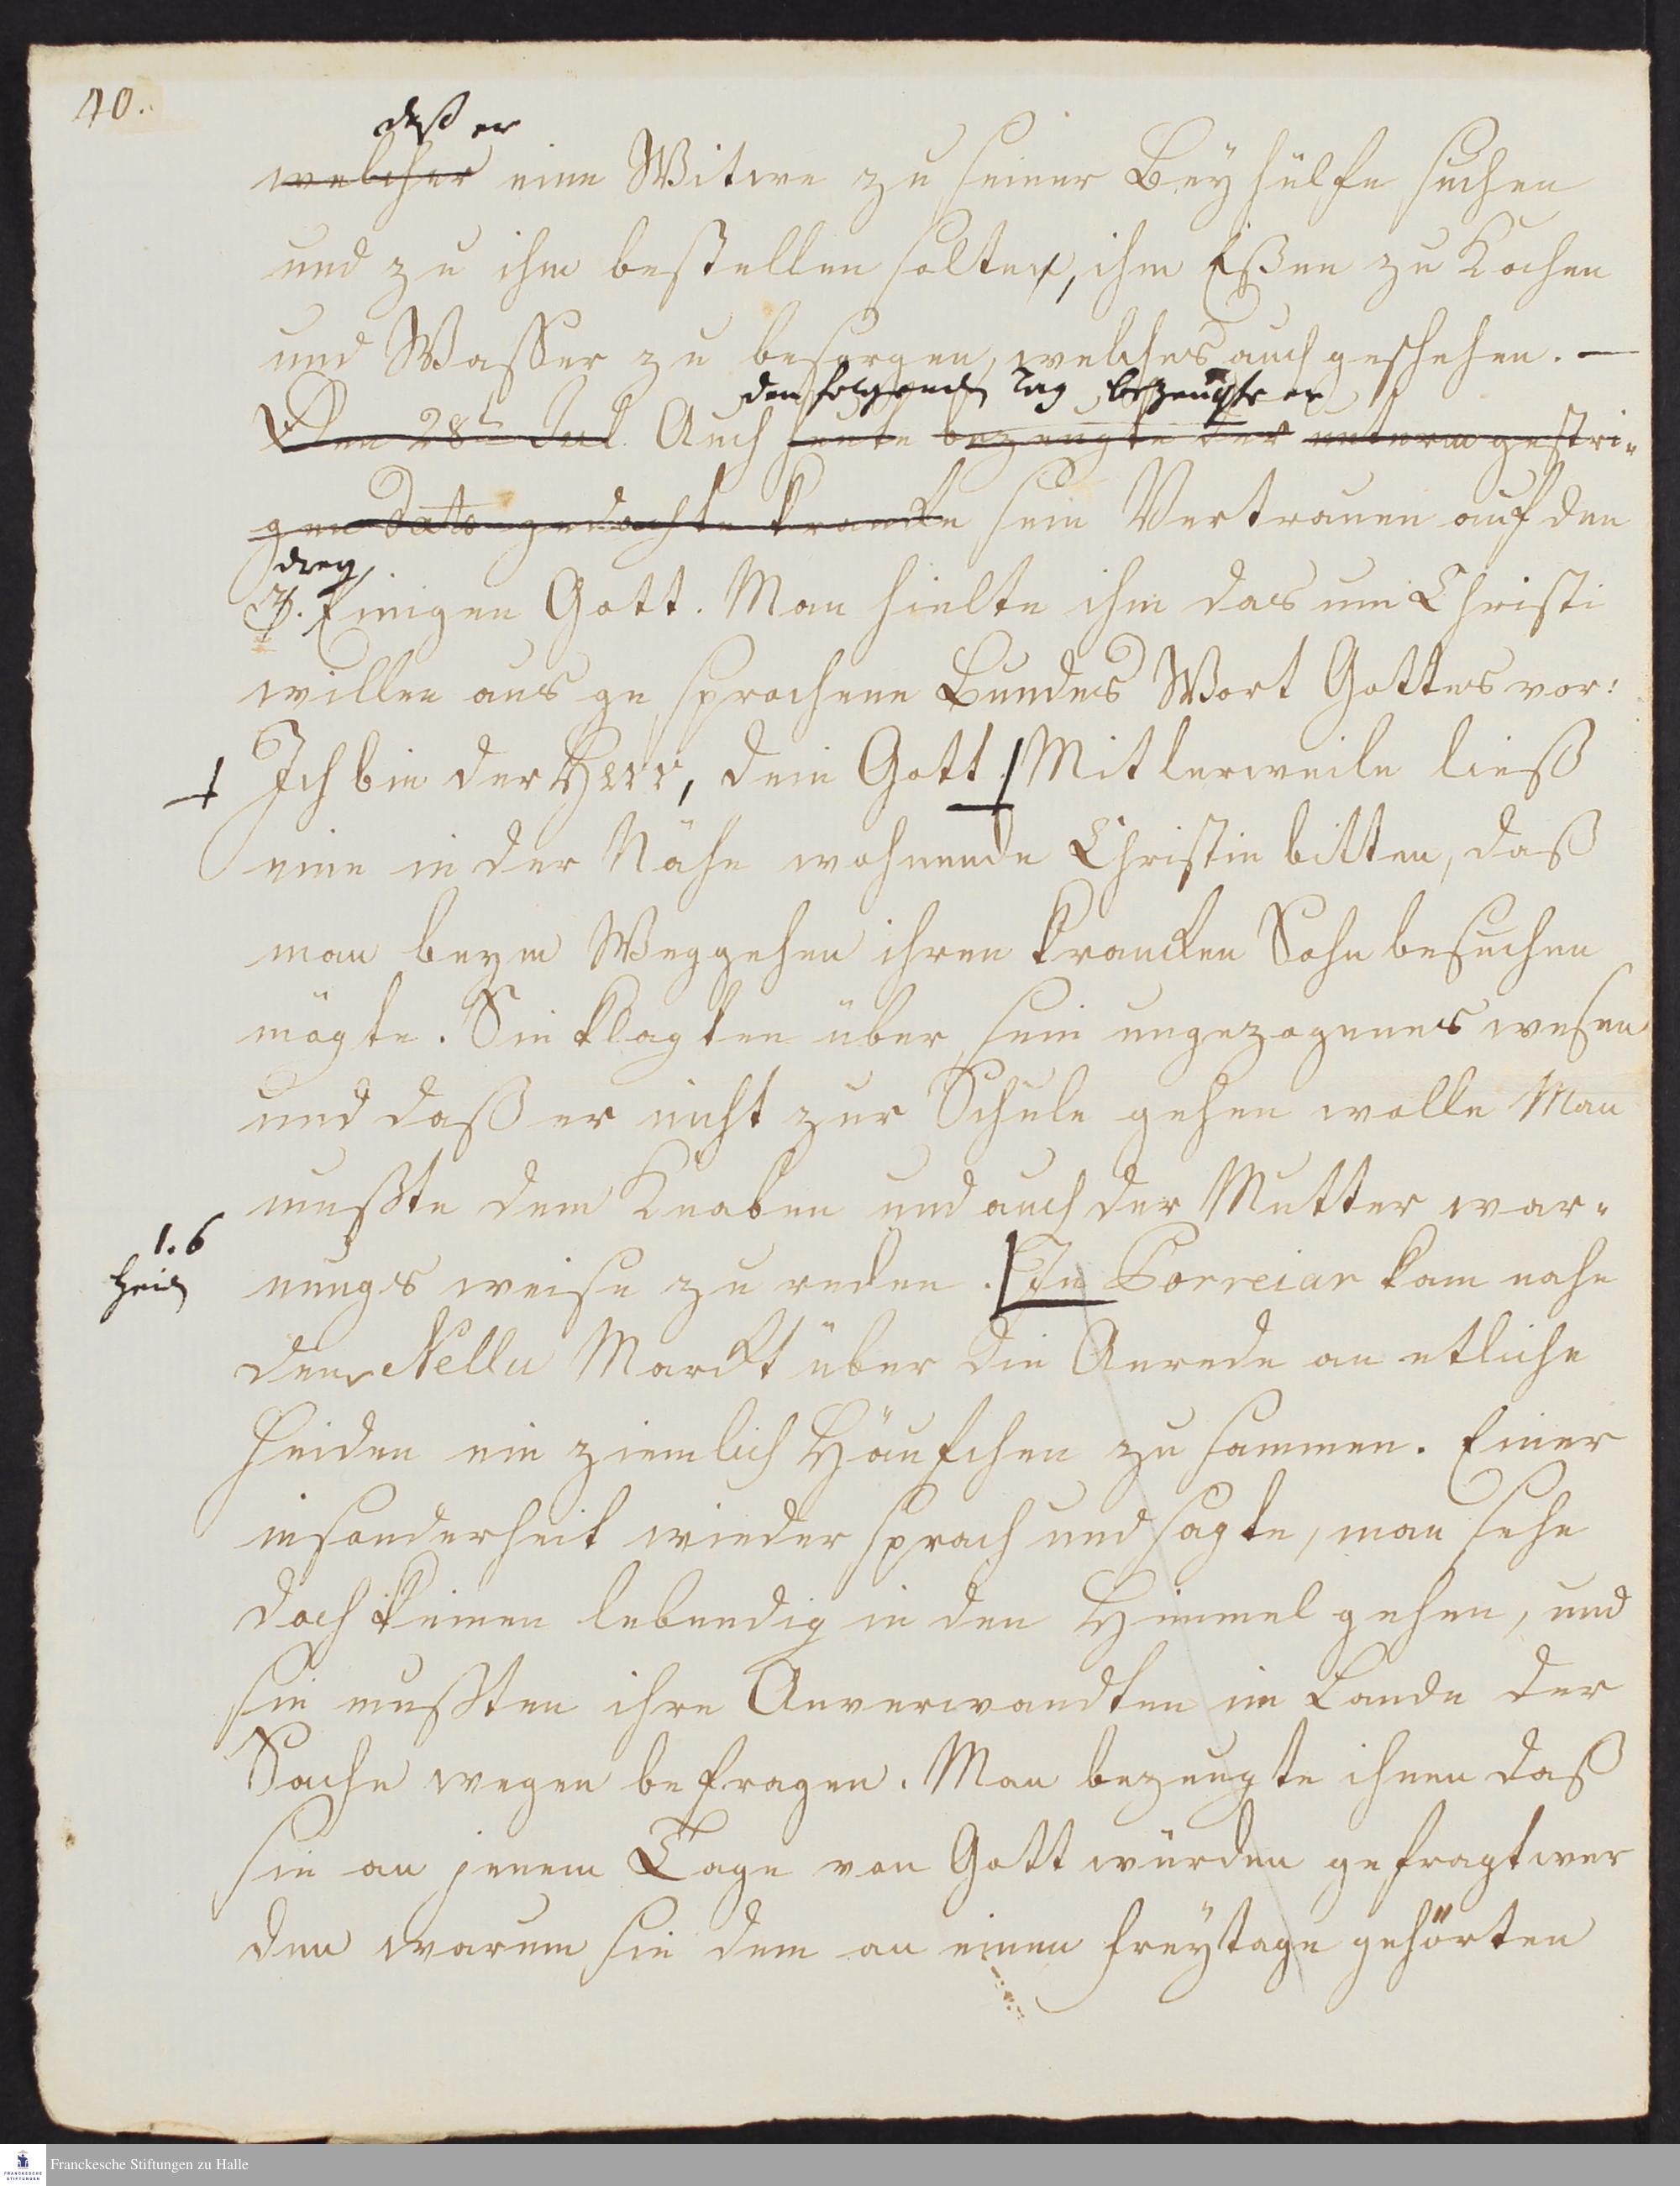 40.
daß er
welcher eine Witwe zu seiner Beyhülfe suchen
und zu ihm bestellen solten, ihm Eßen zu Kochen
und Waßer zu besorgen, welches auch geschehen. —
den folgenden Tag bezeugte er
Den 28t Jul. Auch heute bezeugte der unterm gestri-
gen Dato gedachte krancke sein Vertrauen auf den
drey
3. Einigen Gott. Man hielte ihm das um Christi
willen aus ge sprochene Bundes Wort Gottes vor:
Ich bin der Herr, dein Gott. Mitlerweile ließ
eine in der Nähe wohnende Christin bitten, daß
man beym Weggehen ihren krancken Sohn besuchen
mögte. Sie klagten über sein ungezogenes wesen
und daß er nicht zur Schule gehen wolle Man
mußte dem Knaben und auch der Mutter war-
1. 6
Heid
nungs weise zu reden. In Porreiar kam nahe
dem Nellu Marckt über die Anrede an etliche
Heiden ein ziemlich Häufchen zu sammen. Einer
insonderheit wieder sprach und sagte, man sehe
doch keinen lebendig in den Himmel gehen, und
sie mußten ihre Anverwandten im Lande der
Sache wegen befragen. Man bezeugte ihnen daß
sie an jenem Tage von Gott würden gefragt wer
den warum sie dem an einem Freytage gehörten
Franckesche Stiftungen zu Halle